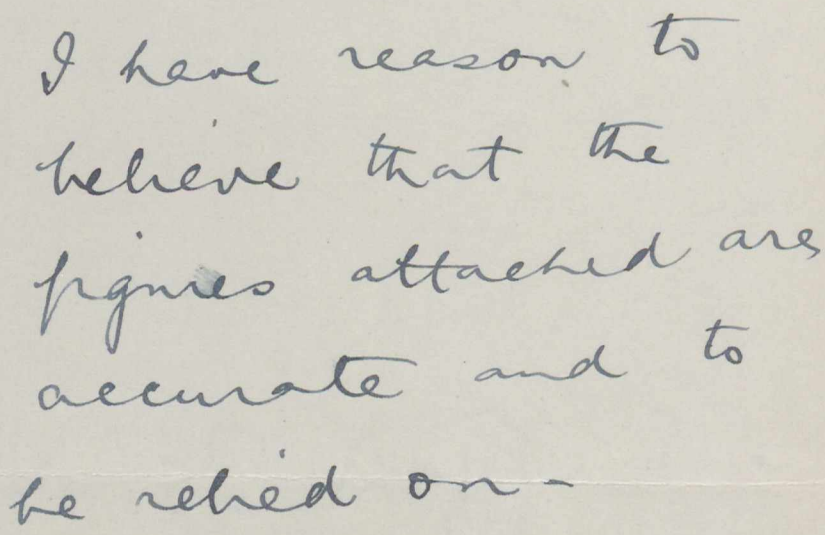 I have reason to
believe that the
figures attached are
accurate and to
be relied on -